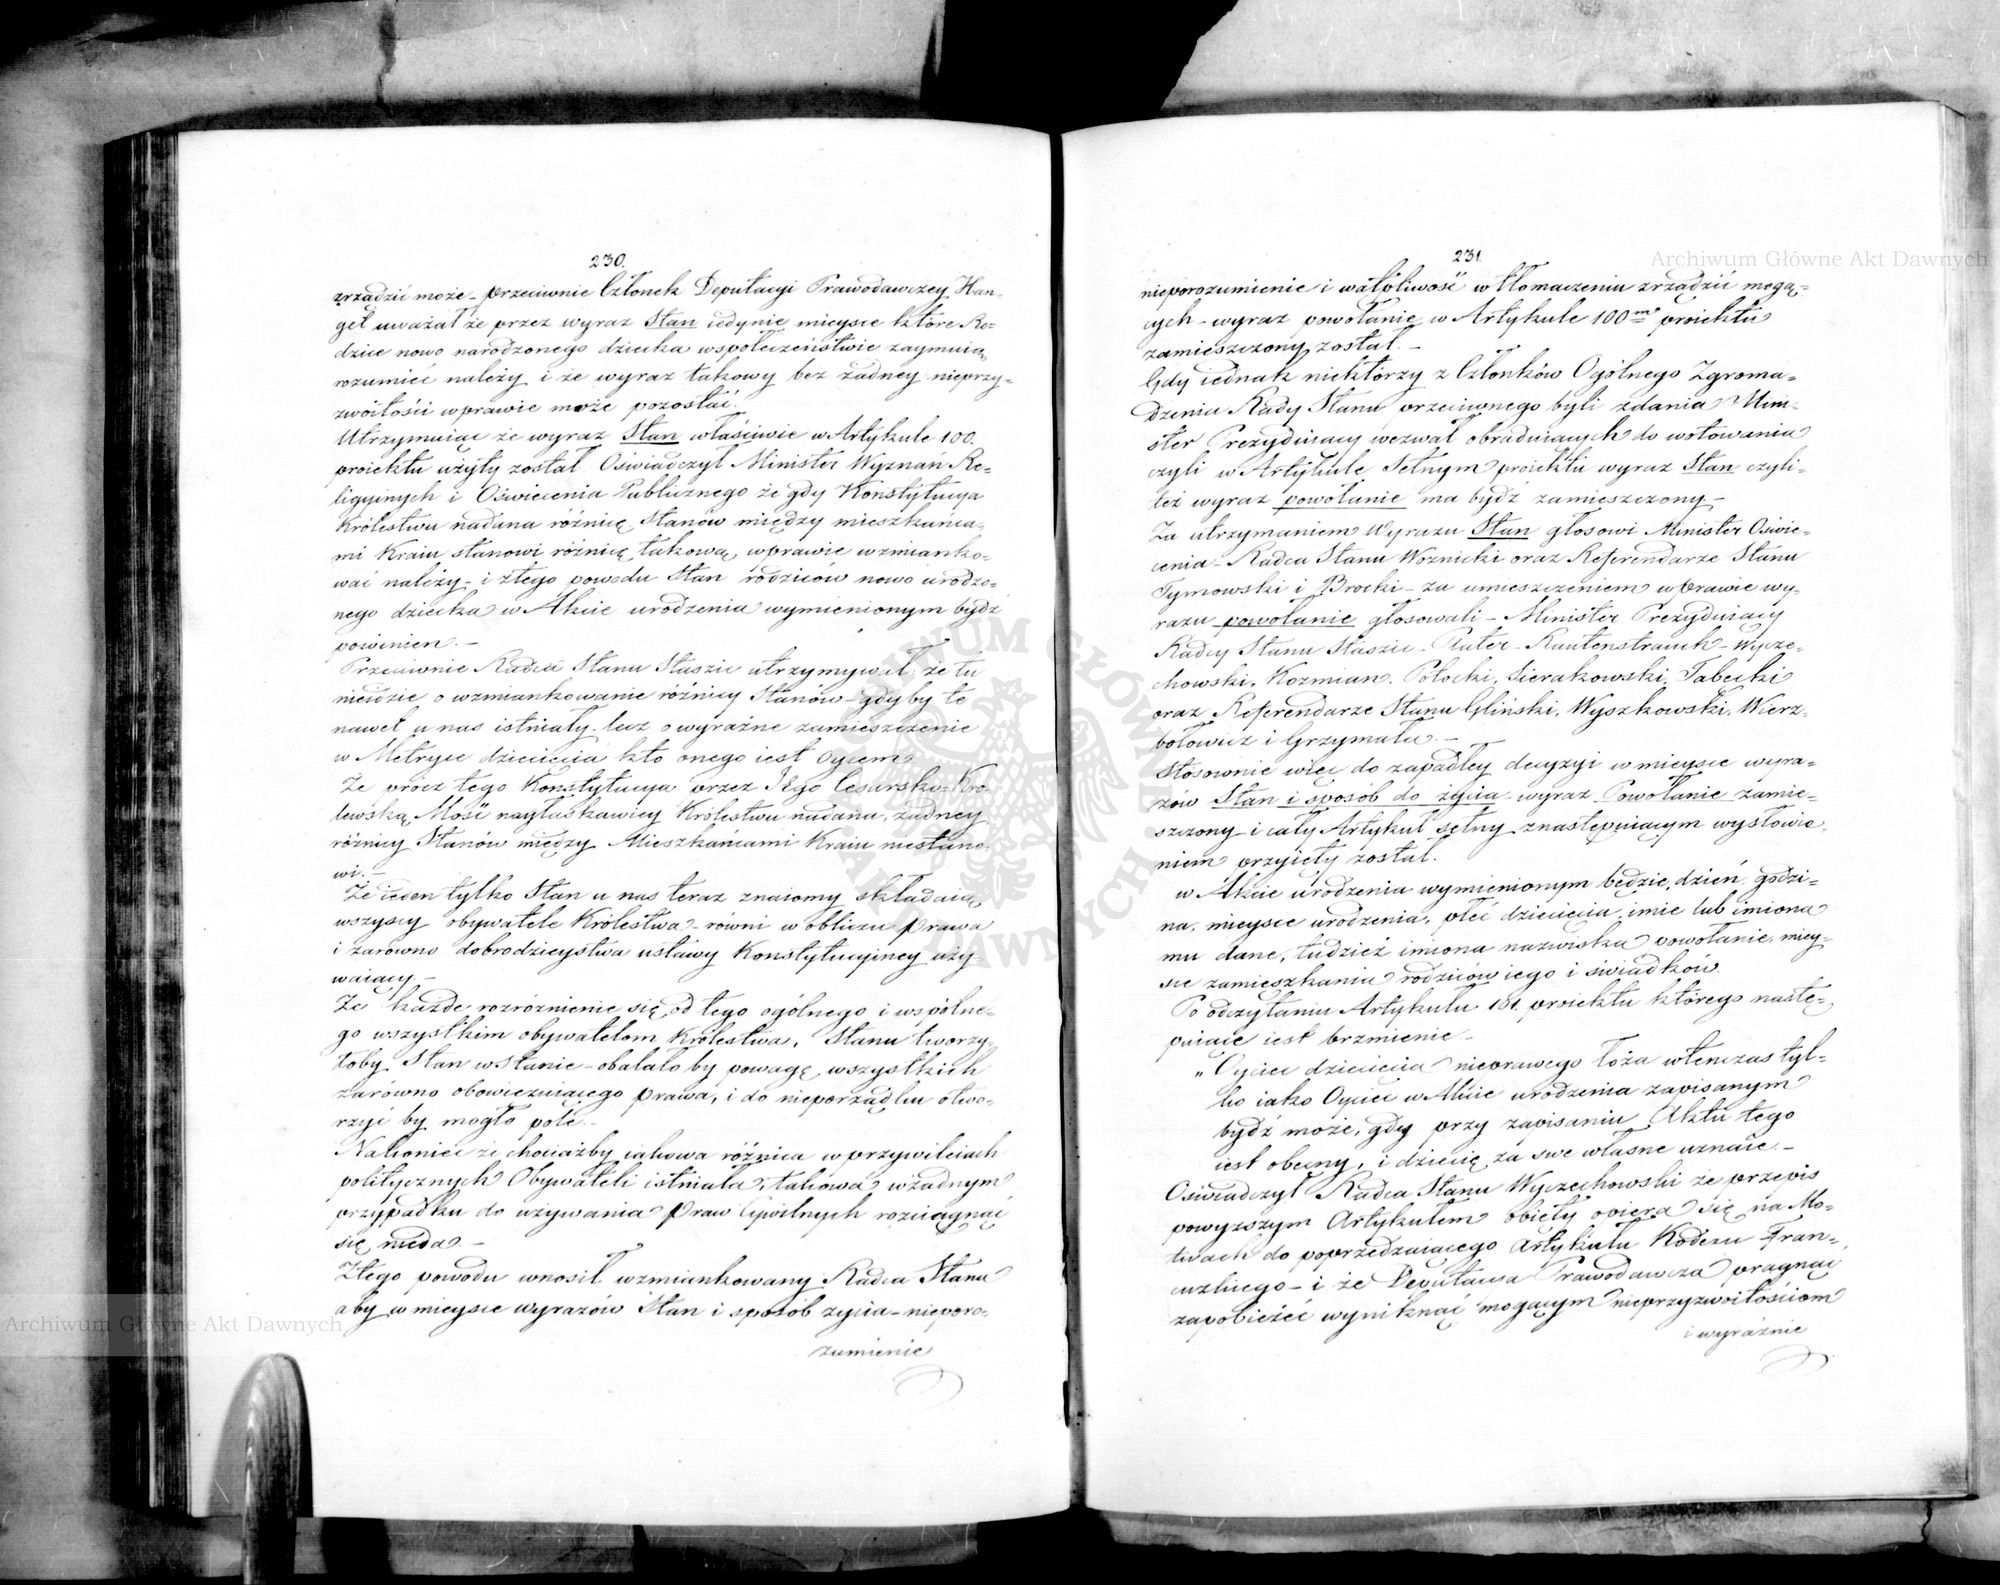 230.
zrządzić może - przeciwnie Członek Deputacyi Prawodawczey Han-
gel uważał że przez wyraz Stan iedynie mieysce które Ro-
dzice nowo narodzonego dziecka wspołeczeństwie zaymuią
rozumieć należy i że wyraz takowy bez żadney nieprzy-
zwoitości wprawie może pozostać.
Utrzymuiąc że wyraz Stan właściwie w Artykule 100.
proiektu użyty został. Oświadczył Minister Wyznań Re-
ligyinych i Oświecenia Publicznego że gdy Konstytucya
Królestwu nadana różnicę Stanów między mieszkańca-
mi Kraiu stanowi różnicę takową wprawie wzmianko-
wać należy - i ztego powodu Stan rodziców nowo urodzo-
nego dziecka w Akcie urodzenia wymienionym bydź
powinien. -
Przeciwnie Radca Stanu Staszic utrzymywał, że tu
nieidzie o wzmiankowanie różnicy Stanów - gdyby te
nawet u nas istniały - lecz o wyraźne zamieszczenie
w Metryce dziecięcia kto onego iest Oycem
Że prócz tego Konstytucya przez Jego Cesarsko-Kro-
lewską Mość nayłaskawiey Królestwu nadana, żadney
różnicy Stanów między Mieszkańcami Kraiu niestano-
wi. -
Że ieden tylko Stan u nas teraz znaiomy składaią
wszyscy obywatele Królestwa - równi w obliczu prawa
i zarówno dobrodzieystwa ustawy Konstytucyiney uży-
waiący. -
Że każde rozróżnienie się od tego ogólnego i wspólne-
go wszystkim obywatelom Królestwa, Stanu tworzy-
łoby Stan wstanie - obalało by powagę wszystkich
zarówno obowiezuiącego prawa, i do nieporządku otwo-
rzyć by mogło pole. -
Nakoniec że chociażby iakowa różnica w przywileiach
politycznych Obywateli istniała, takowa wżadnym
przypadku do używania praw Cywilnych rozciągnąć
się nieda. -
Ztego powodu wnosił wzmiankowany Radca Stanu
aby w mieysce wyrazów Stan i sposób życia - nieporo-
zumienie
231.
nieporozumienie i wątpliwość w tłomaczeniu zrządzić mogą-
cych - wyraz powołanie w Artykule 100m proiektu
zamieszczony został. -
Gdy iednak niektórzy z Członków Ogólnego Zgroma-
dzenia Rady Stanu przeciwnego byli zdania Mini-
ster Prezyduiący wezwał obraduiących do wotowania
czyli w Artykule Setnym proiektu wyraz Stan czyli-
też wyraz powołanie ma bydź zamieszczony -
Za utrzymaniem Wyrazu Stan głosowi Minister Oświe-
cenia - Radca Stanu Woznicki oraz Referendarze Stanu
Tymowski i Brocki - za umieszczeniem wprawie wy-
razu powołanie głosowali - Minister Prezyduiący
Radcy Stanu Staszic - Plater - Rautenstrauch - Wycze-
chowski, Kozmian, Potocki, Sierakowski, Tabecki
oraz Referendarze Stanu Gliński, Wyszkowski, Wierz-
bołowicz i Grzymała. -
Stosownie więc do zapadłey decyzyi w mieysce wyra-
zów Stan i sposób do życia - wyraz Powołanie zamie-
szczony - i cały Artykuł setny znastępuiącym wysłowie-
niem przyięty został.
w Akcie urodzenia wymienionym będzie, dzień godzi-
na, mieysce urodzenia, płeć dziecięcia, imie lub imiona
mu dane, tudzież imiona nazwiska powołanie, miey-
sce zamieszkania rodziców iego i świadków.
Po odczytaniu Artykułu 101. proiektu którego nastę-
puiące iest brzmienie -
„Oyciec dziecięcia nieprawego łoża wtenczas tyl-
ko iako Oyciec w Akcie urodzenia zapisanym
bydź może, gdy przy zapisaniu Aktu tego
iest obecny, i dziecię za swe własne uznaie. -
Oświadczył Radca Stanu Wyczechowski że przepis
powyższym Artykułem obięty opiera się na Mo-
tivach do poprzedzaiącego Artykułu Kodexu Fran-
cuzkiego - i że Deputacya Prawodawcza pragnąc
zapobieżeć wyniknąć mogącym nieprzyzwoitościom
i wyraźnie
Archiwum Główne Akt Dawnych
Archiwum Główne Akt Dawnych
ARCHIWUM GŁÓWNE AKT DAWNYCH